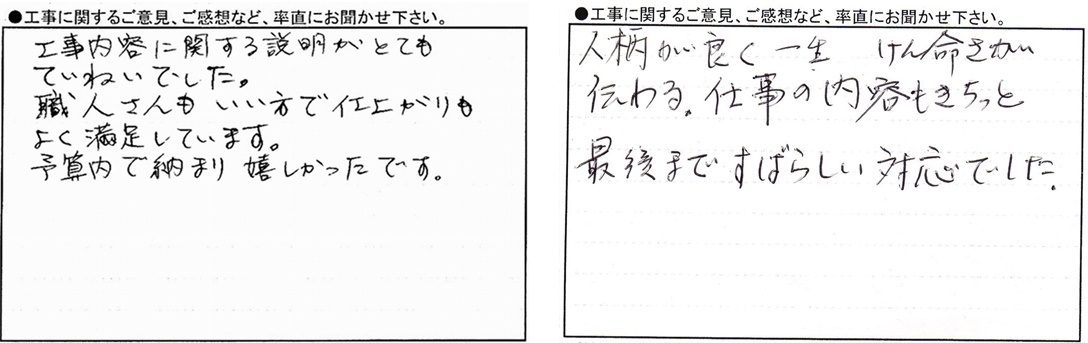 ●工事に関するご意見、ご感想など、率直にお聞かせ下さい。
工事内容に関する説明がとても
ていねいでした。
職人さんも いい方で仕上がりも
よく満足しています。
予算内で納まり 嬉しかったです。
●工事に関するご意見、ご感想など、率直にお聞かせ下さい。
人柄が良く 一生 けん命さが
伝わる。仕事の内容もきちっと
最後まですばらしい 対応でした。